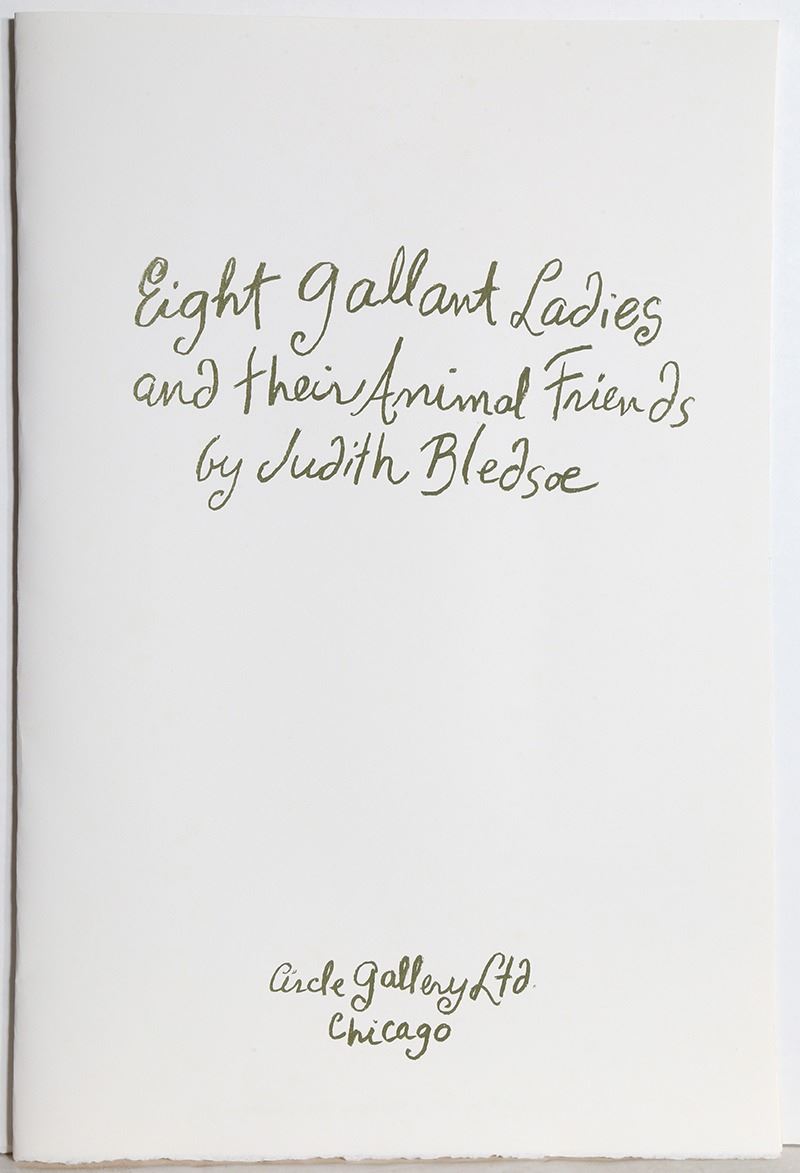 Eight Gallant Ladies
and their Animal Friends
by Judith Bledsoe
Circle Gallery Ltd.
Chicago